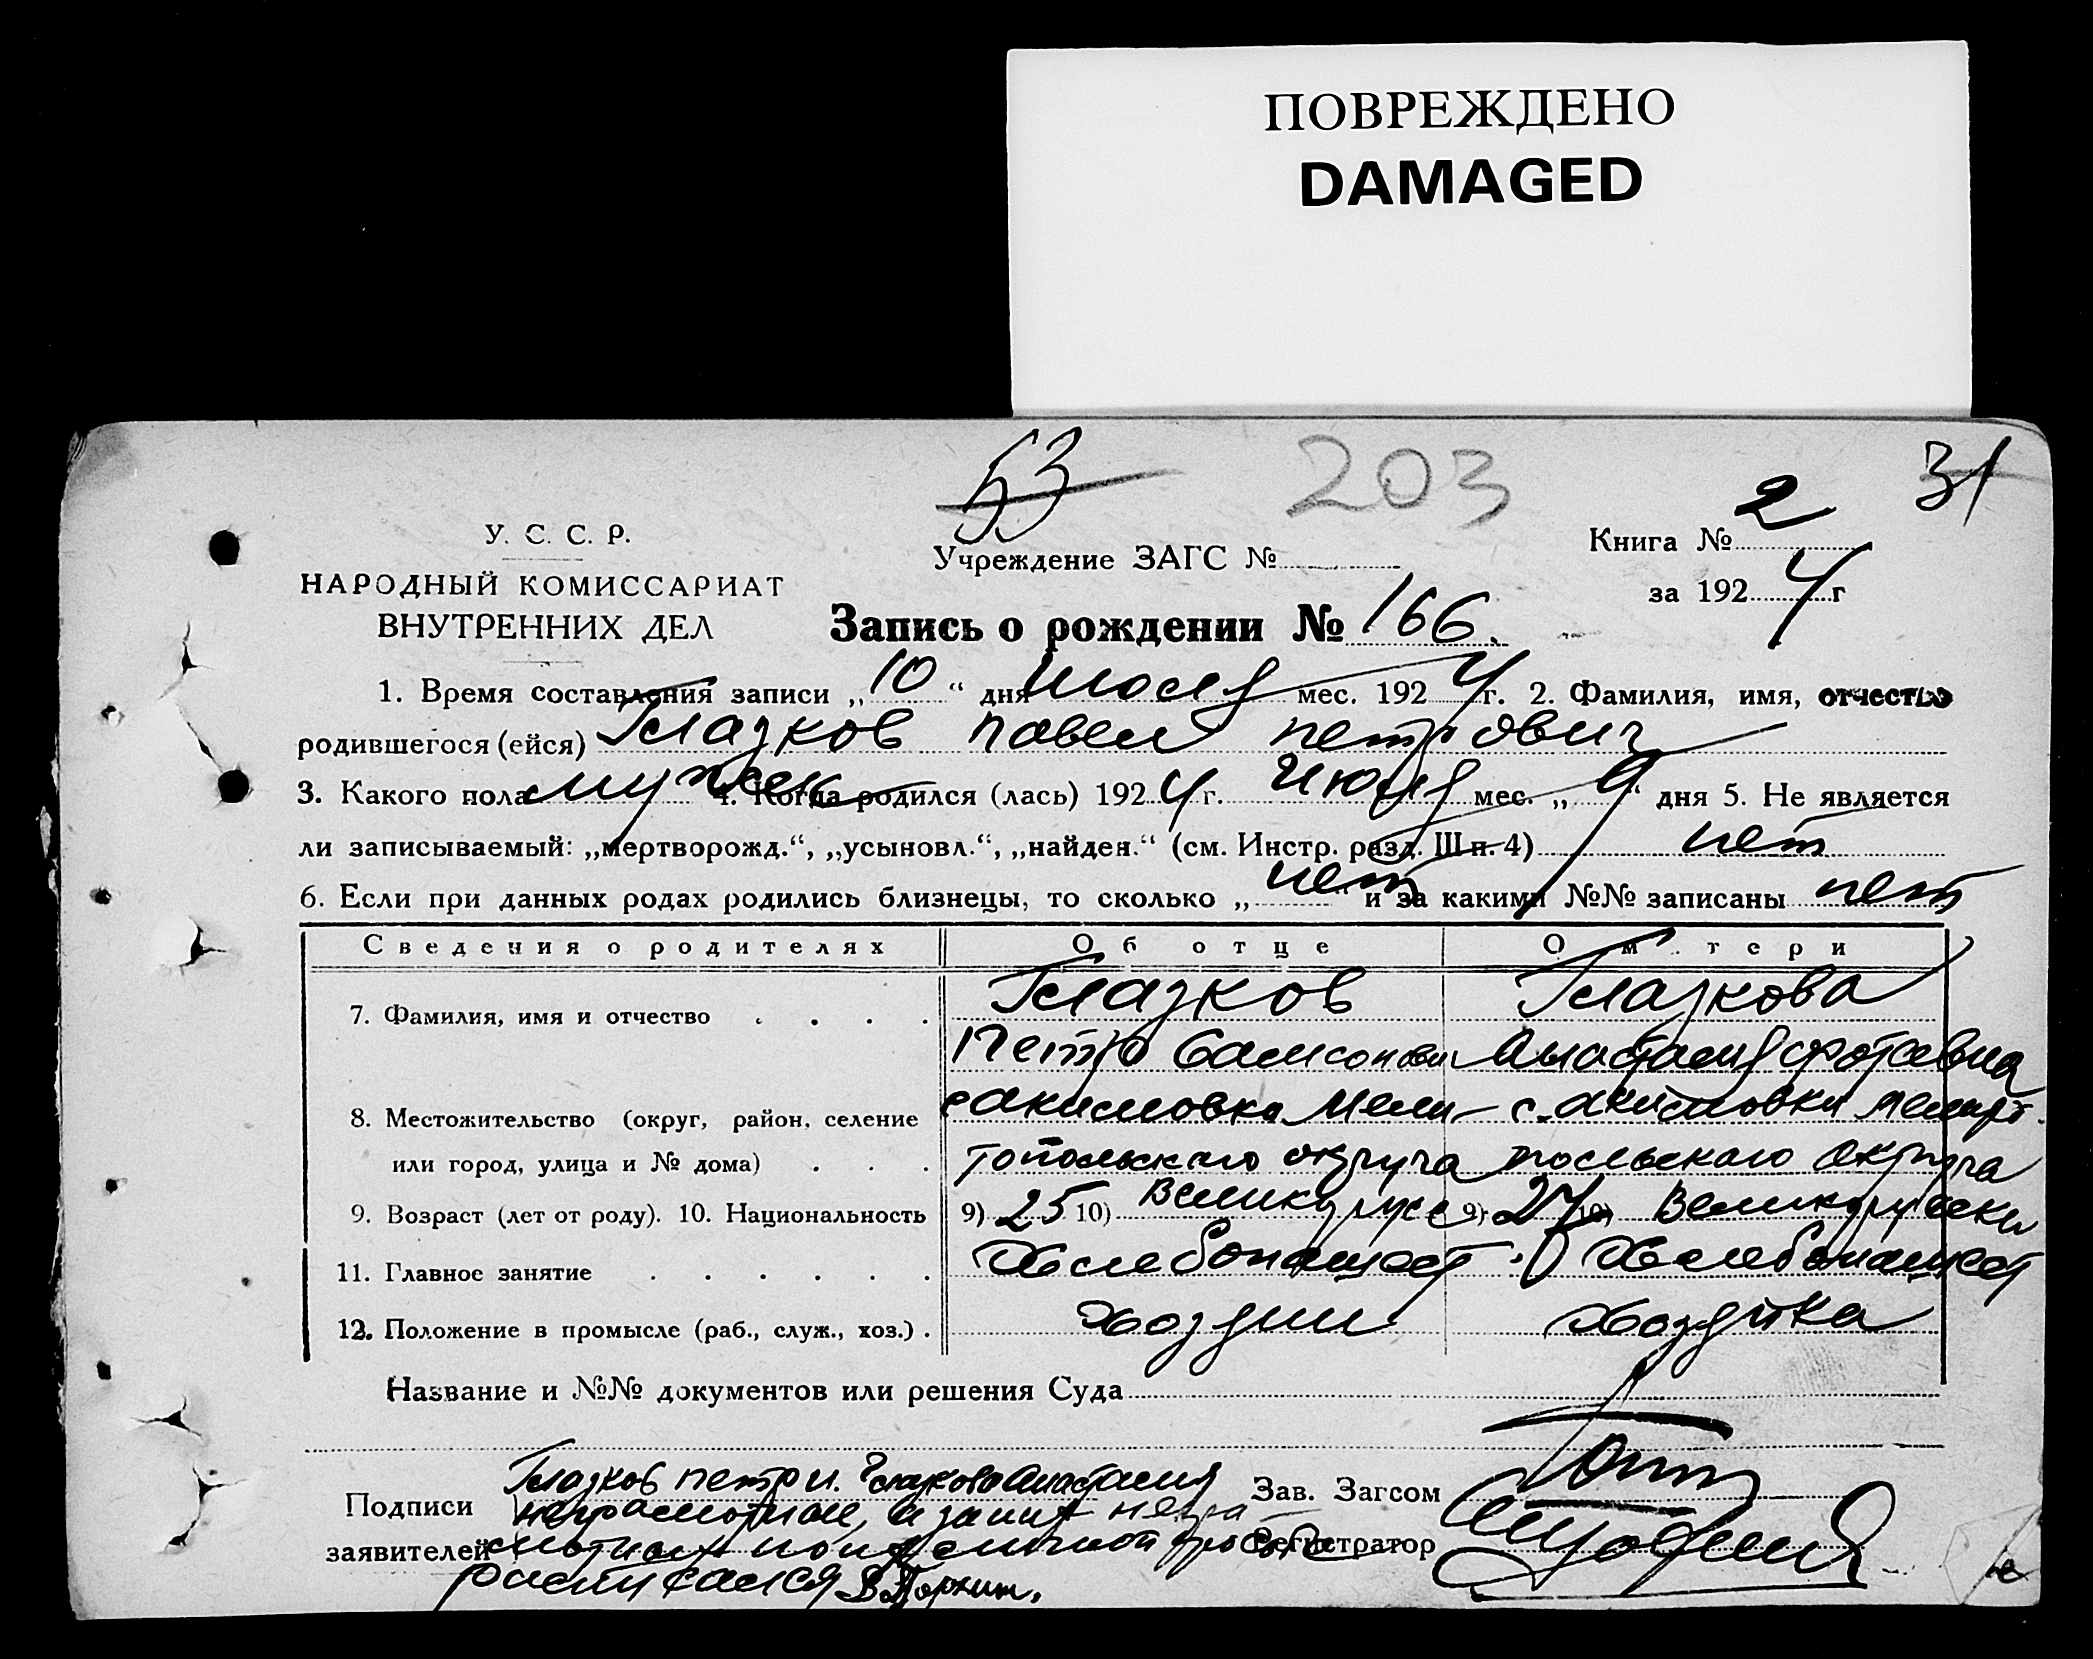 ПОВРЕЖДЕНО
DAMAGED
53 203 31
У. С. С. Р.
НАРОДНЫЙ КОМИССАРИАТ
ВНУТРЕННИХ ДЕЛ
Учреждение ЗАГС №
Книга № 2
за 1924 г
Запись о рождении № 166.
1. Время составления записи „10“ дня Июля мес. 1924 г. 2. Фамилия, имя, отчество
родившегося (ейся) Глазков Павел Петрович
3. Какого пола мужск 4. Когда родился (лась) 1924 г. Июля мес. „9“ дня 5. Не является
ли записываемый: „мертворожд.“, „усыновл.“, „найден.“ (см. Инстр. разд. Ш п. 4) нет
6. Если при данных родах родились близнецы, то сколько „нет“ и за какими №№ записаны нет
Сведения о родителях Об отце О матери
7. Фамилия, имя и отчество Глазков Глазкова
Петр Самсонови Анастасия Фотеевна
8. Местожительство (округ, район, селение с акимовка Мели- с. акимовки Мелито
или город, улица и № дома) топольскаго округа польскаго округа
9. Возраст (лет от роду). 10. Национальность 9) 25 10) Великорусс 9) 24 10) Великорусски
11. Главное занятие Хлебопашест. Хлебопашест
12. Положение в промысле (раб., служ., хоз.) хозяин хозяйка
Название и №№ документов или решения Суда
Глазков Петр и. Глазкова Анастасия
Подписи неграмотные, а за них негра- Зав. Загсом
заявителей мотных по их личной просьбе Регистратор
расписался В.